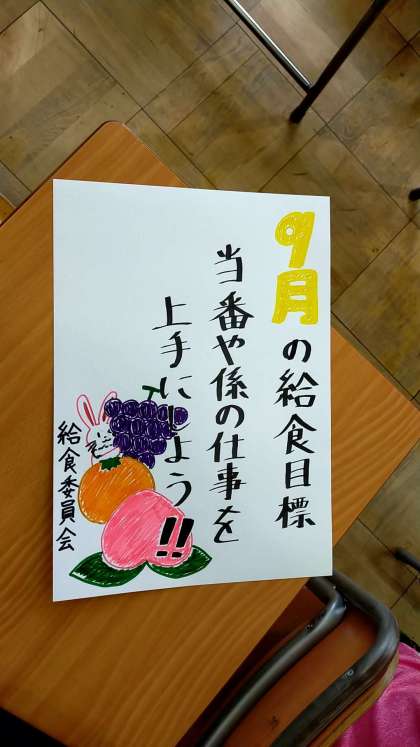 9月の給食目標
当番や係の仕事を
上手にしよう!!
給食委員会